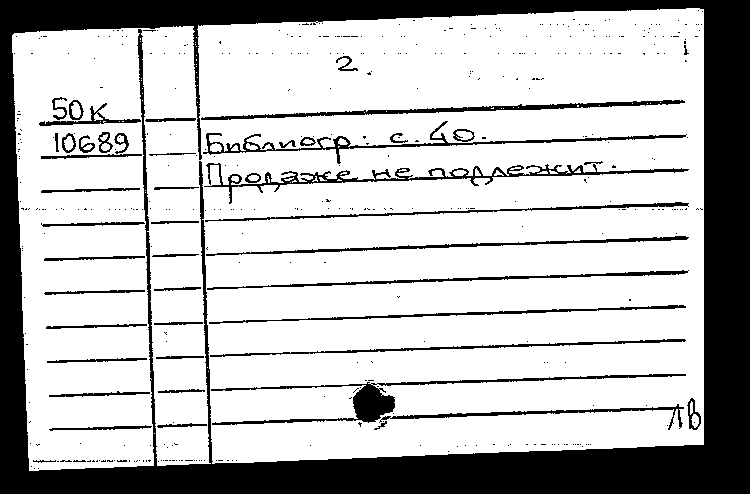 2.
50к
10689 Библиогр: с. 40.
Продаже не подлежит.